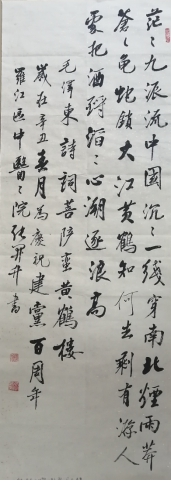 茫々九派流中國沉々一綫穿南北煙雨莽
蒼々龜蛇鎖大江黄鶴知何去剩有游人
處把酒酹滔々心潮逐浪高
毛澤東詩詞菩萨蛮黄鶴樓
歲在辛丑春月為慶祝建黨百周年
羅江區中醫院張昇書